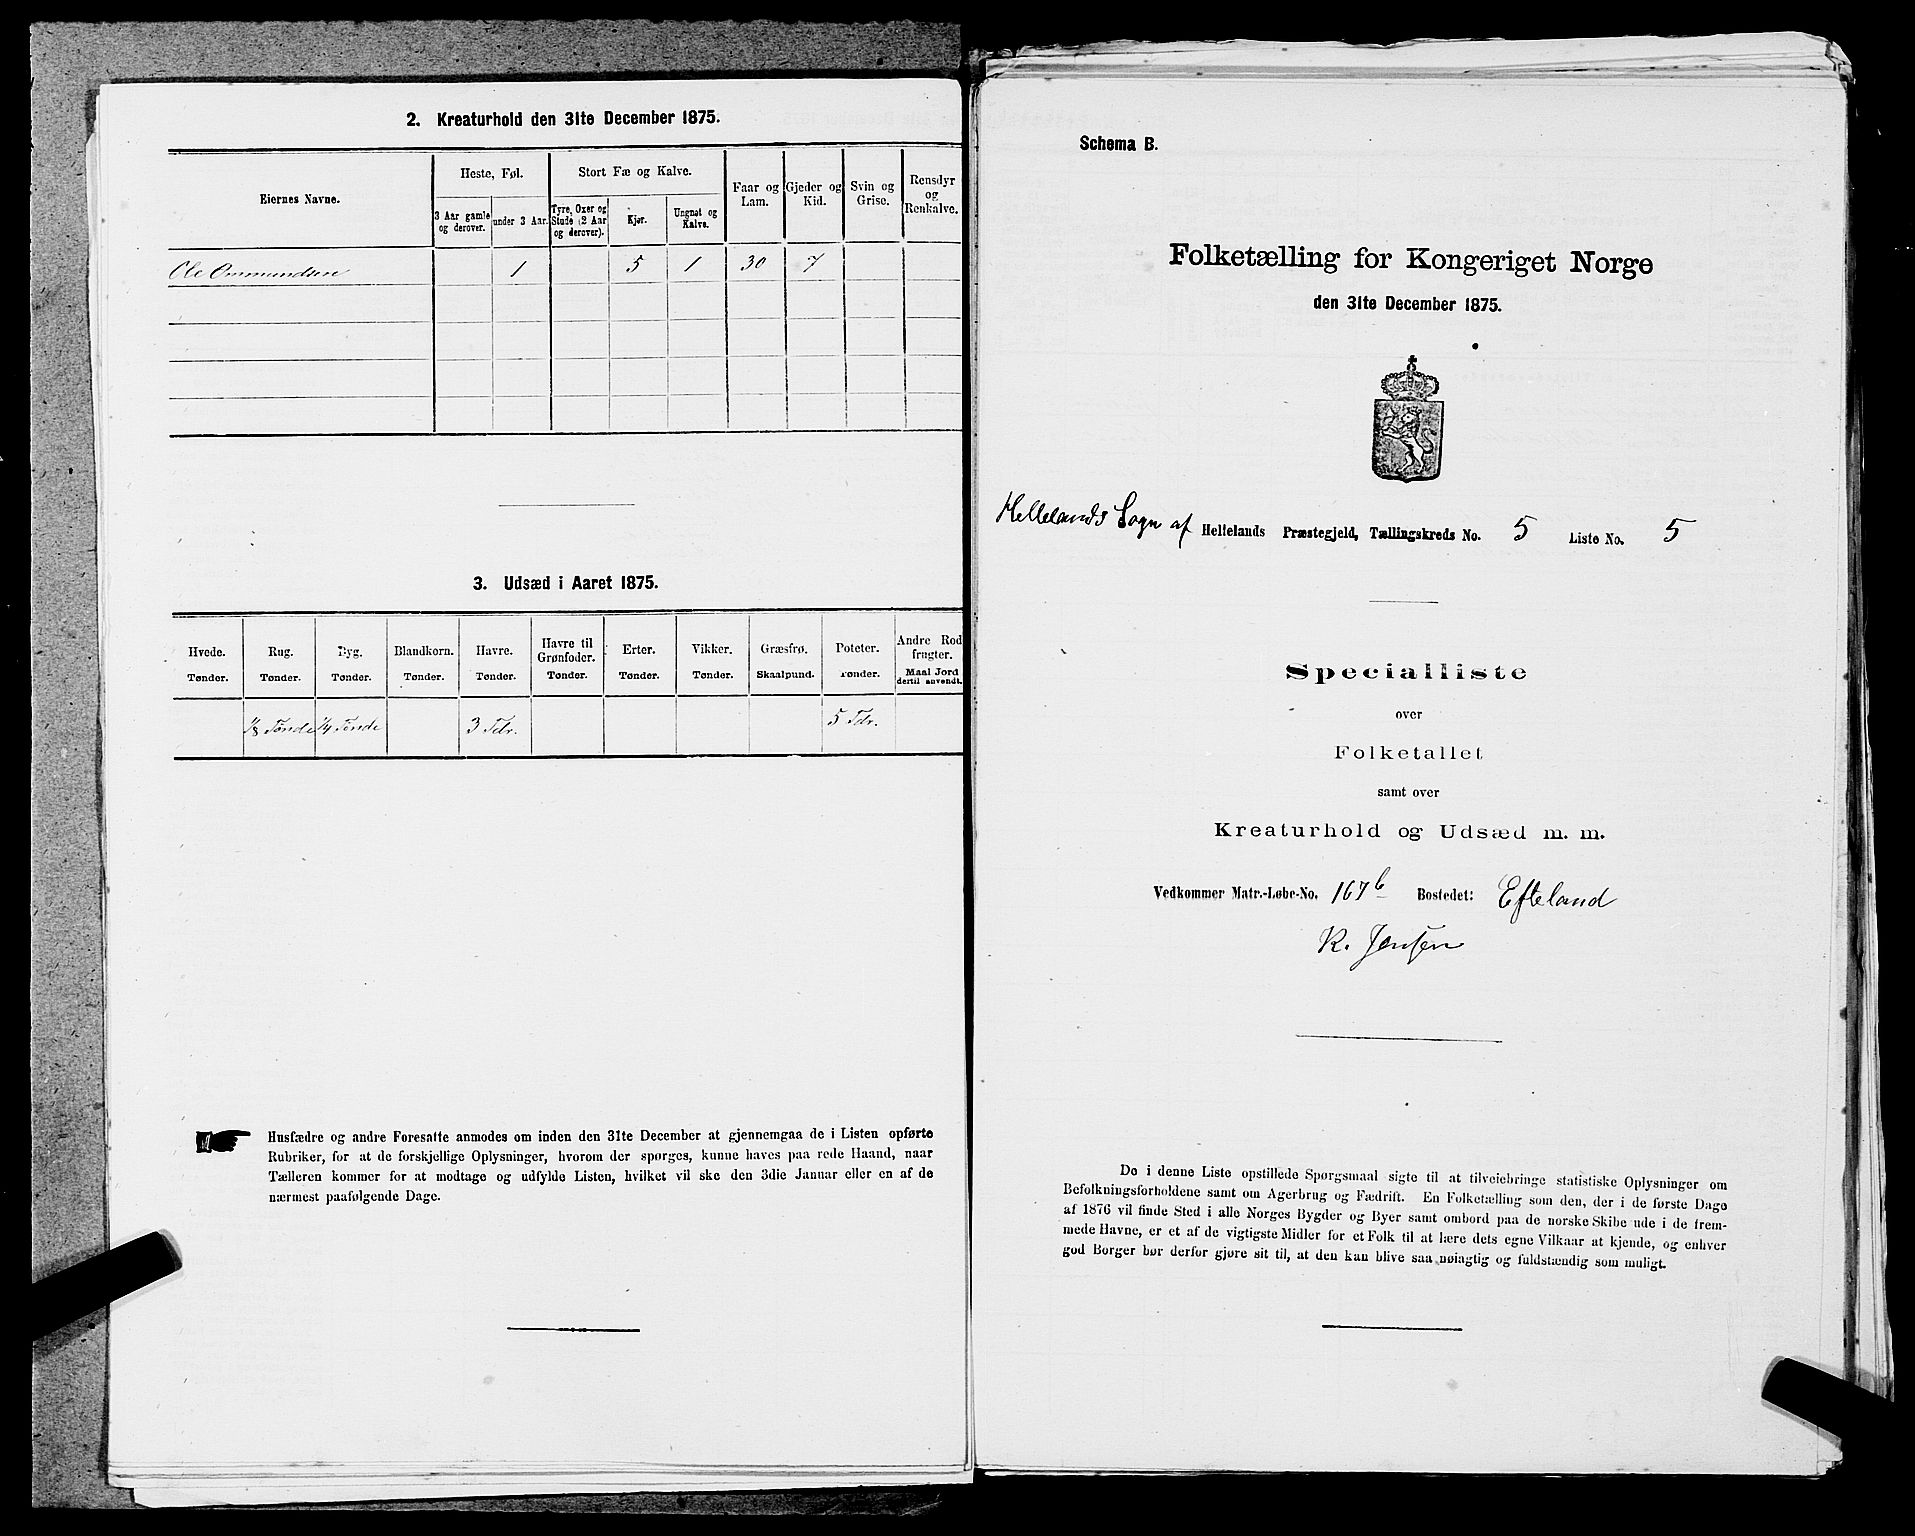 2. Kreaturhold den 31te December 1875.
Eiernes Navne.
Heste, Føl.
3 Aar gamle og derover.
under 3 Aar.
Stort Fæ og Kalve.
Tyre, Oxer og Stude (2 Aar og derover).
Kjør.
Ungnøt og Kalve.
Faar og Lam.
Gjeder og Kid.
Svin og Grise.
Rensdyr og Renkalve.
Ole Ommundsen 1 5 1 30 7
3. Udsæd i Aaret 1875.
Hvede. Rug. Byg. Blandkorn. Havre. Havre til Grønfoder. Erter. Vikker. Græsfrø. Poteter. Andre Rodfrugter.
Tønder. Tønder. Tønder. Tønder. Tønder. Tønder. Tønder. Tønder. Skaalpund. Tønder. Maal Jord dertil anvendt.
1/8 Tønde 1/4 Tønde 3 Tdr. 5 Tdr.
Husfædre og andre Foresatte anmodes om inden den 31te December at gjennemgaa de i Listen opførte
Rubriker, for at de forskjellige Oplysninger, hvorom der spørges, kunne haves paa rede Haand, naar
Tælleren kommer for at modtage og udfylde Listen, hvilket vil ske den 3die Januar eller en af de
nærmest paafølgende Dage.
Schema B.
Folketælling for Kongeriget Norge
den 31te December 1875.
Hellelands Sogn af Hellelands Præstegjeld, Tællingskreds No. 5 Liste No. 5
Specialliste
over
Folketallet
samt over
Kreaturhold og Udsæd m. m.
Vedkommer Matr.-Løbe-No. 167b Bostedet: Efteland
R. Jensen
De i denne Liste opstillede Spørgsmaal sigte til at tilveiebringe statistiske Oplysninger om
Befolkningsforholdene samt om Agerbrug og Fædrift. En Folketælling som den, der i de første Dage
af 1876 vil finde Sted i alle Norges Bygder og Byer samt ombord paa de norske Skibe ude i de frem-
mede Havne, er et af de vigtigste Midler for et Folk til at lære dets egne Vilkaar at kjende, og enhver
god Borger bør derfor gjøre sit til, at den kan blive saa nøiagtig og fuldstændig som muligt.